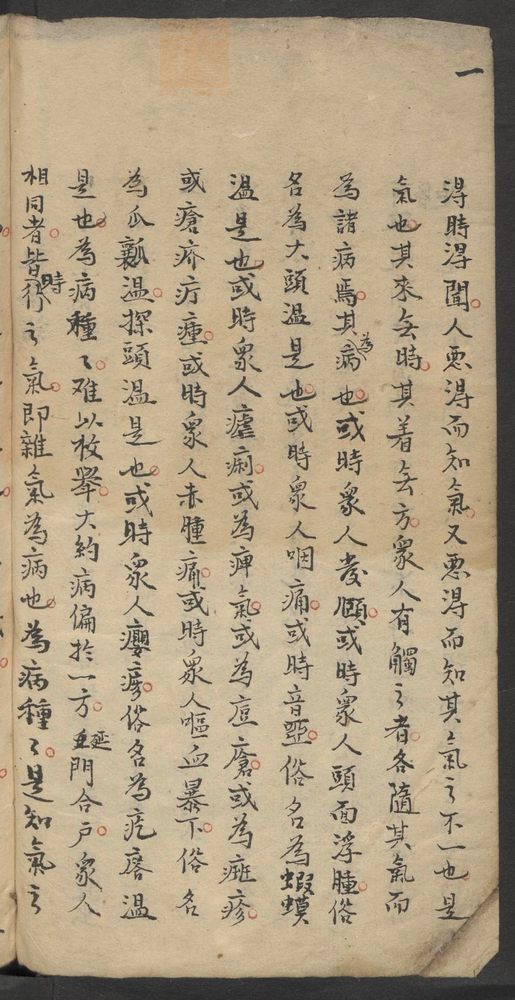 一
得時得聞人惡得而知氣又惡得而知其氣之不一也是
氣也其來無時其着無方衆人有觸之者各隨其氣而
為諸病焉其為病也或時衆人發頤或時衆人頭面浮腫俗
名為大頭温是也或時衆人咽痛或時音啞俗名為蝦蟆
温是也或時衆人瘧痢或為痺氣或為痘瘡或為斑疹
或瘡疥疔瘇或時衆人赤腫痛或時衆人嘔血暴下俗名
為瓜瓤温探頭温是也或時衆人癭痎俗名為疙瘩温
是也為病種々难以枚舉大約病偏於一方延門合戶衆人
相同者皆時行之氣即雜氣為病也為病種々是知氣之